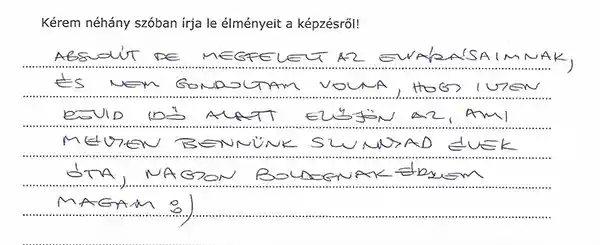 Kérem néhány szóban írja le élményeit a képzésről!
ABSOLÚT DE MEGFELELT AZ ELVÁRÁSAIMNAK,
ÉS NEM GONDOLTAM VOLNA, HOGY ILYEN
RÖVID IDŐ ALATT ELŐJÖN AZ, AMI
MÉLYEN BENNÜNK SZUNNYAD ÉVEK
ÓTA, NAGYON BOLDOGNAK ÉRZEM
MAGAM :)